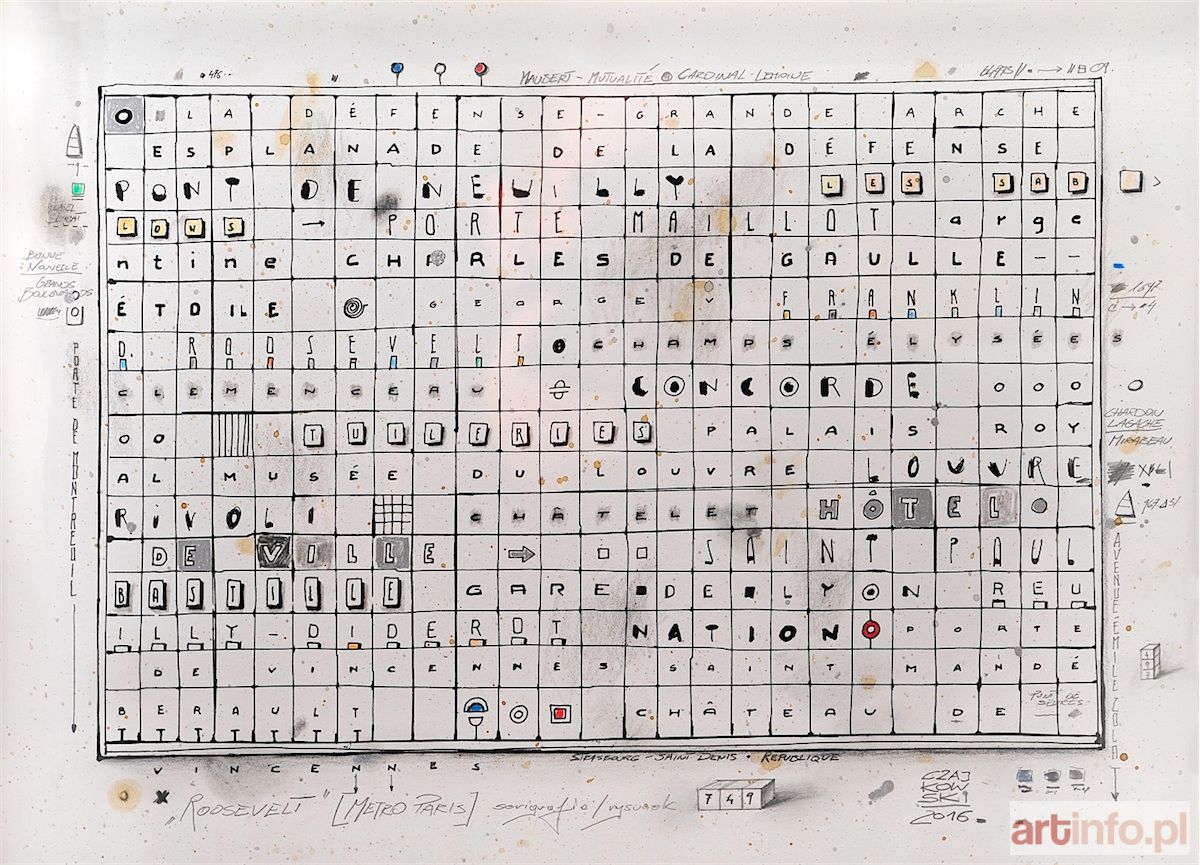 MAUBERT - MUTUALITÉ CARDINAL - LEMOINE
LA DÉFENSE - GRANDE ARCHE
ESPLANADE DE LA DÉFENSE
PONT DE NEUILLY LES SAB
LONS → PORTE MAILLOT arge
ntine CHARLES DE GAULLE --
ÉTOILE GEORGE V FRANKLIN
D. ROOSEVELT CHAMPS ÉLYSÉES
CLEMENCEAU CONCORDE
TUILERIES PALAIS ROY
AL MUSÉE DU LOUVRE LOUVRE
RIVOLI CHÂTELET HÔTEL
DE VILLE SAINT PAUL
BASTILLE GARE DE LYON REU
ILLY - DIDEROT NATION PORTE
DE VINCENNES SAINT MANDÉ
BERAULT CHÂTEAU DE
VINCENNES
STRASBOURG - SAINT DENIS • REPUBLIQUE
BONNE
NOUVELLE
GRANDS
BOULEVARDS
PORTE DE MONTREUIL
CHARDON
LAGACHE
MIRABEAU
AVENUE-EMILE ZOLA
"ROOSEVELT" [METRO PARIS] serigrafia/rysunek
749
CZAJ
KOW
SKI
2016.
artinfo.pl